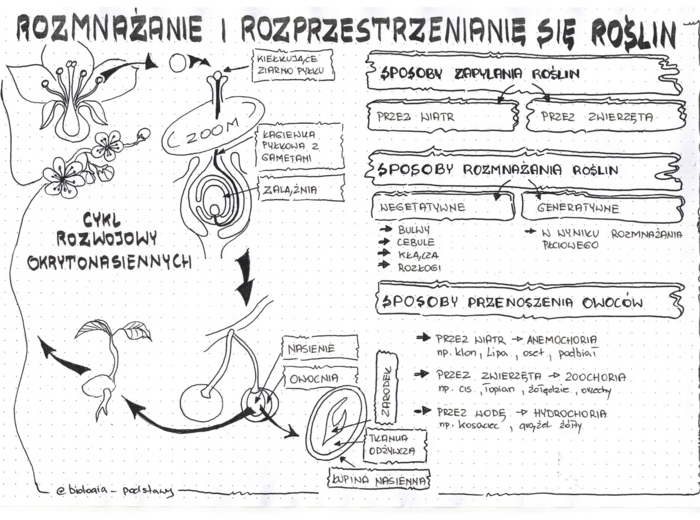 ROZMNAŻANIE I ROZPRZESTRZENIANIE SIĘ ROŚLIN
KIEŁKUJĄCE
ZIARNO PYŁKU
ZOOM
ŁAGIEWKA
PYŁKOWA Z
GAMETAMI
ZALĄŻNIA
CYKL
ROZWOJOWY
OKRYTONASIENNYCH
NASIENIE
OWOCNIA
ZARODEK
TKANKA
ODŻYWCZA
ŁUPINA NASIENNA
@biologia_podstawy
SPOSOBY ZAPYLANIA ROŚLIN
PRZEZ WIATR
PRZEZ ZWIERZĘTA
SPOSOBY ROZMNAŻANIA ROŚLIN
WEGETATYWNE
GENERATYWNE
BULWY
CEBULE
KŁĄCZA
ROZŁOGI
W WYNIKU ROZMNAŻANIA
PŁCIOWEGO
SPOSOBY PRZENOSZENIA OWOCÓW
PRZEZ WIATR → ANEMOCHORIA
np. klon, lipa, oset, podbiał
PRZEZ ZWIERZĘTA → ZOOCHORIA
np. cis, łopian, żołędzie, orzechy
PRZEZ WODĘ → HYDROCHORIA
np. kosaciec, grążel żółty